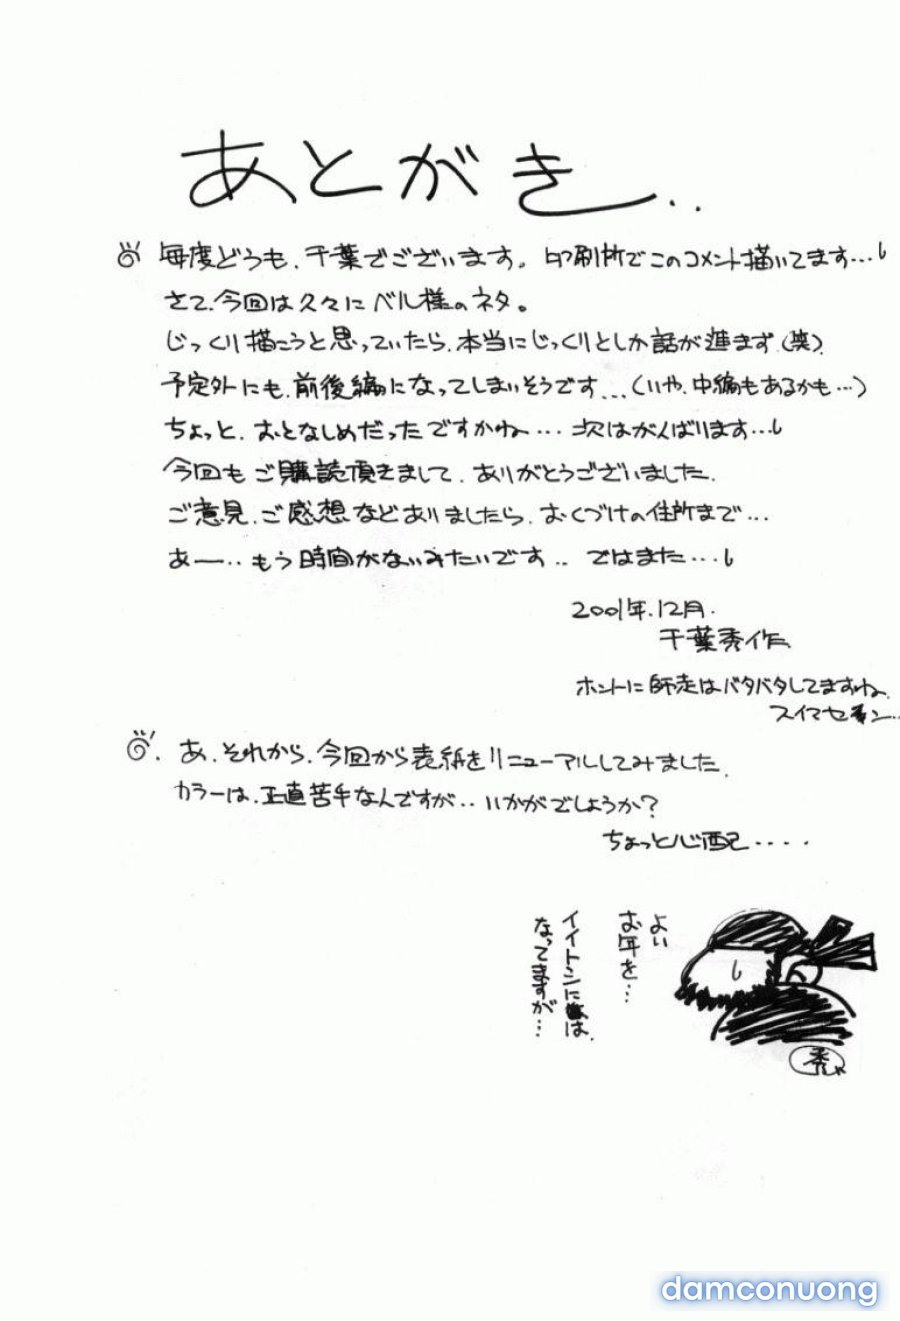 あとがき..
毎度どうも、千葉でございます。印刷所でこのコメント描いてます…
さて、今回は久々にベル様のネタ。
じっくり描こうと思っていたら、本当にじっくりとしか話が進まず、(笑)
予定外にも、前後編になってしまいそうです…(いや、中編もあるかも…)
ちょっと、おとなしめだったですかね…次はがんばります…
今回もご購読頂きまして、ありがとうございました。
ご意見、ご感想などありましたら、おくづけの住所まで…
あー‥もう時間がないみたいです‥ではまた…
2001年.12月.
千葉秀作
ホントに師走はバタバタしてますね、
スイマセン‥
あ、それから、今回から表紙をリニューアルしてみました。
カラーは、正直苦手なんですが‥いかがでしょうか?
ちょっと心配....
よい
お年を…
イイトシには、
なってますが…
秀
damconuong